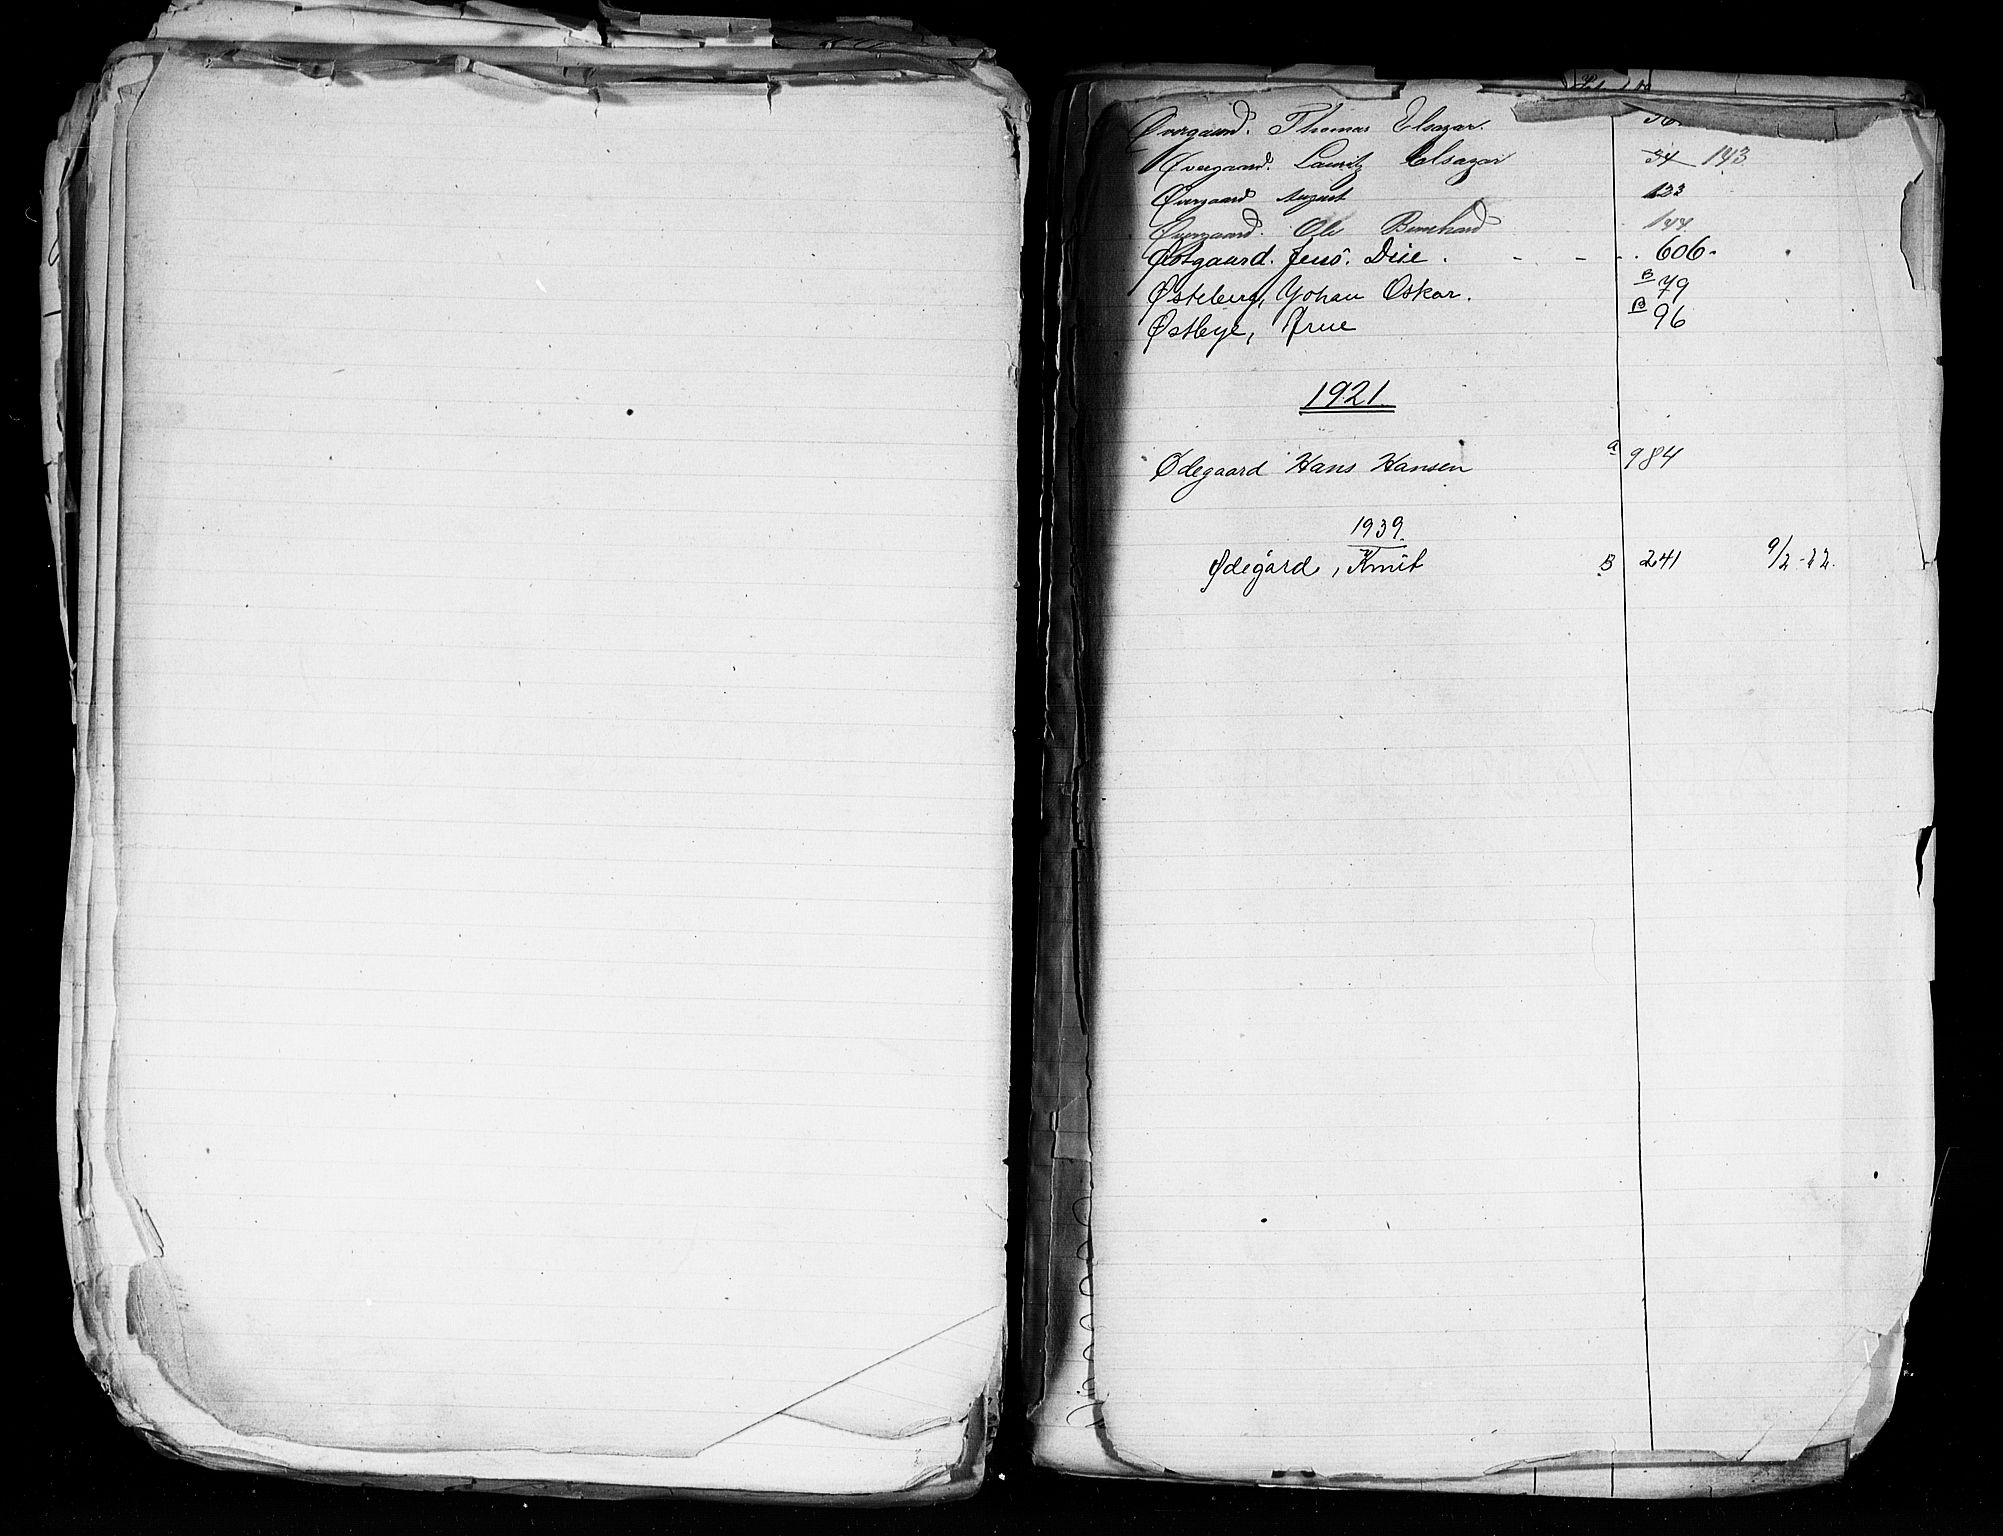 Øvergaard. Thomas Elsazar.
Øvergaard. Lauritz Elsazar 34 143
Øvergaard August 133
Øvergaard. Ole Bernhard 144
Østgaard. Jens. Dise. - - - . 606.
Østeberg, Johan Oskar. B 79
Østbye, Arne B 96
1921.
Ødegaard Hans Hansen a 984
1939.
Ødegård, Knut B 241 9/2-22.